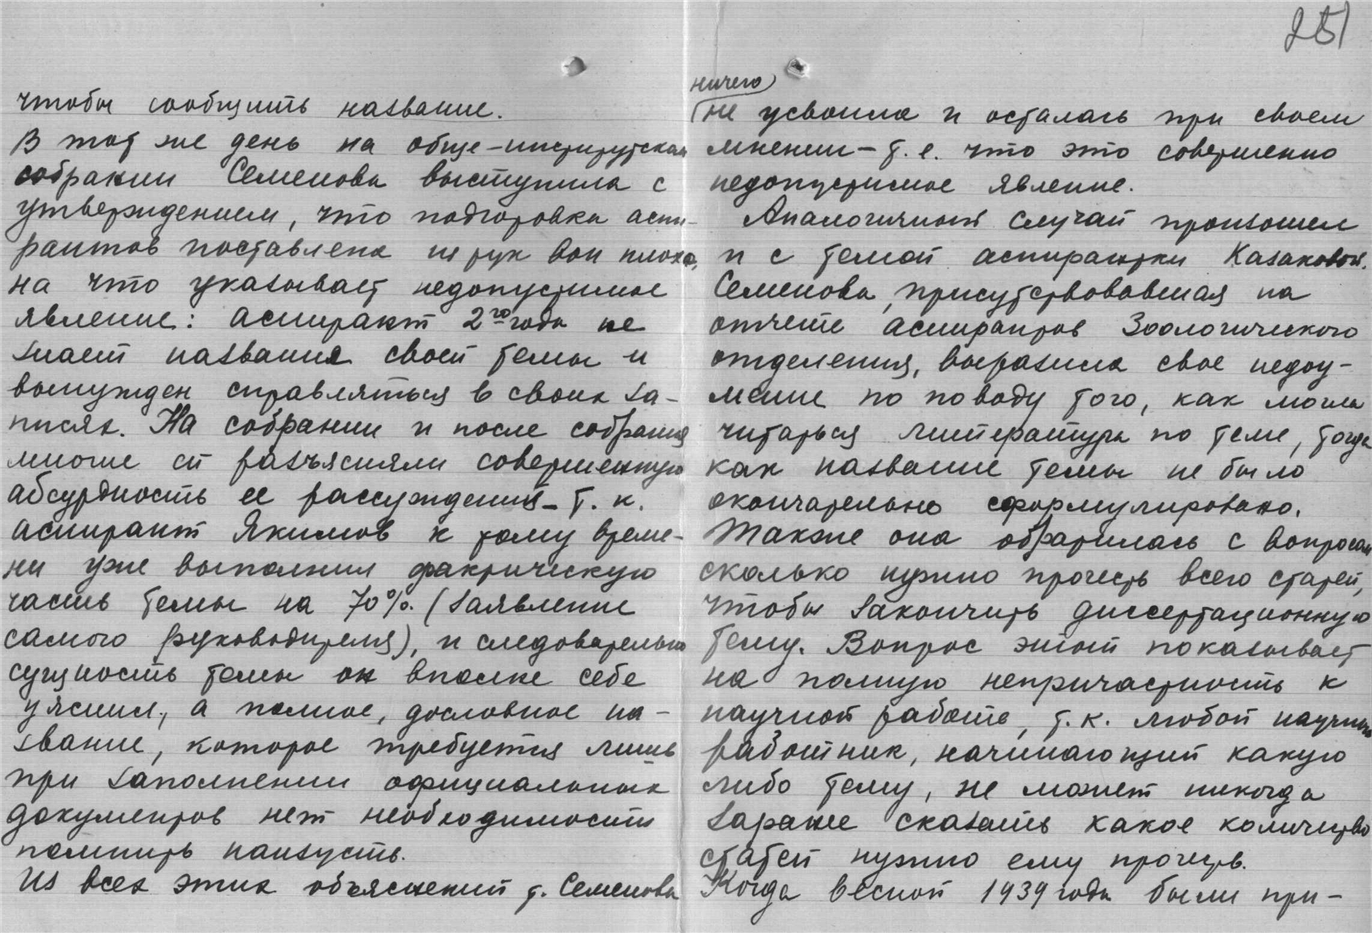 251
чтобы сообщить название.
В тот же день на обще-институтском
собрании Семенова выступила с
утверждением, что подготовка аспи-
рантов поставлена из рук вон плохо,
на что указывает недопустимое
явление: аспирант 2го года не
знает названия своей темы и
вынужден справляться в своих за-
писях. На собрании и после собрания
многие ей разъясняли совершенную
абсурдность ее рассуждений - т. к.
аспирант Якимов к тому време-
ни уже выполнил фактическую
часть темы на 70%. (заявление
самого руководителя), и следовательно
сущность темы он вполне себе
уяснил, а полное, дословное на-
звание, которое требуется лишь
при заполнении официальных
документов нет необходимости
помнить наизусть.
Из всех этих объяснений т. Семенова
ничего
не усвоила и осталась при своем
мнении - т. е. что это совершенно
недопустимое явление.
Аналогичный случай произошел
и с темой аспирантки Казаковой.
Семенова, присутствовавшая на
отчете аспирантов Зоологического
отделения, выразила свое недоу-
мение по поводу того, как могла
читаться литература по теме, тогда
как название темы не было
окончательно сформулировано.
Также она обратилась с вопросом
сколько нужно прочесть всего статей,
чтобы закончить диссертационную
тему. Вопрос этот показывает
на полную непричастность к
научной работе, т. к. любой научный
работник, начинающий какую
либо тему, не может никогда
заранее сказать какое количество
статей нужно ему прочесть.
Когда весной 1939 года были при-